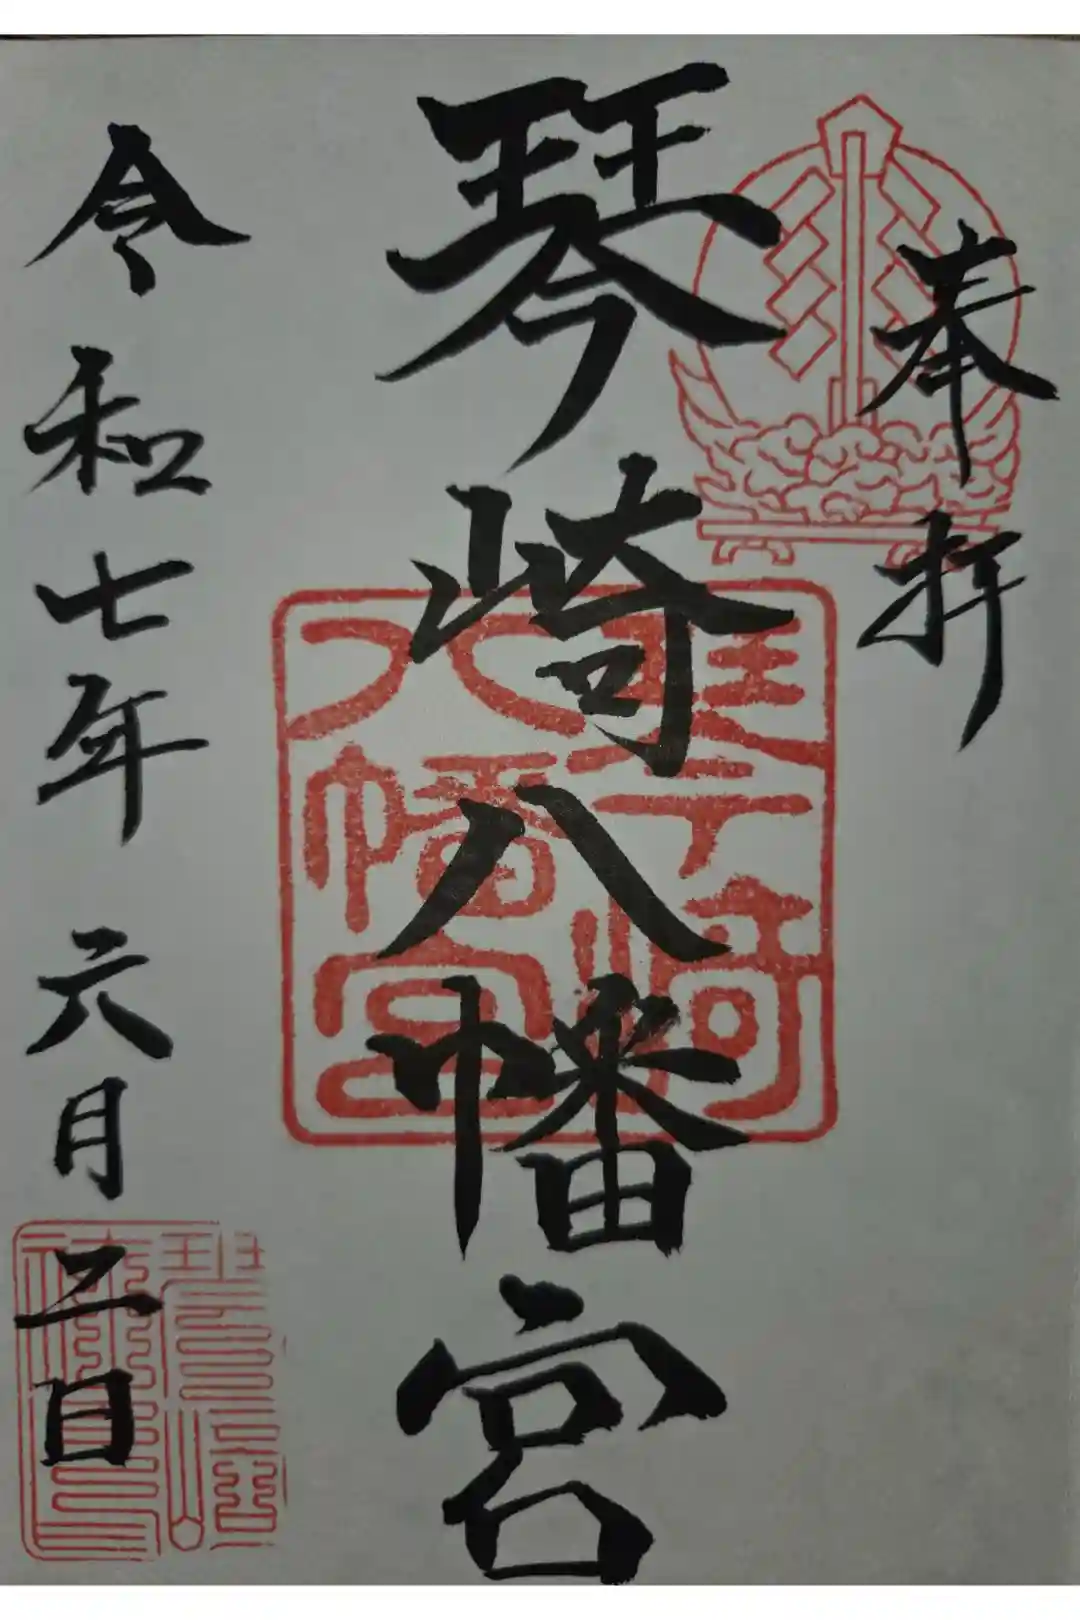 奉拝
琴崎八幡宮
琴崎八幡宮
令和七年六月二日